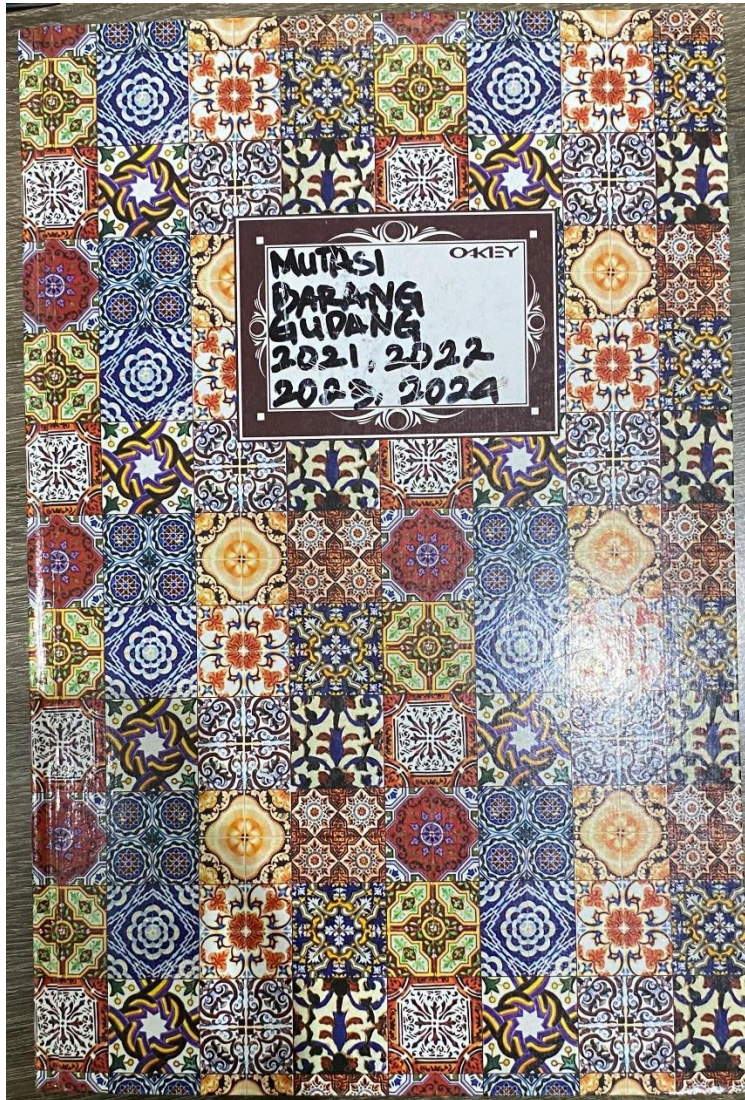 OAKLEY
MUTASI
BARANG
GUDANG
2021, 2022
2023, 2024